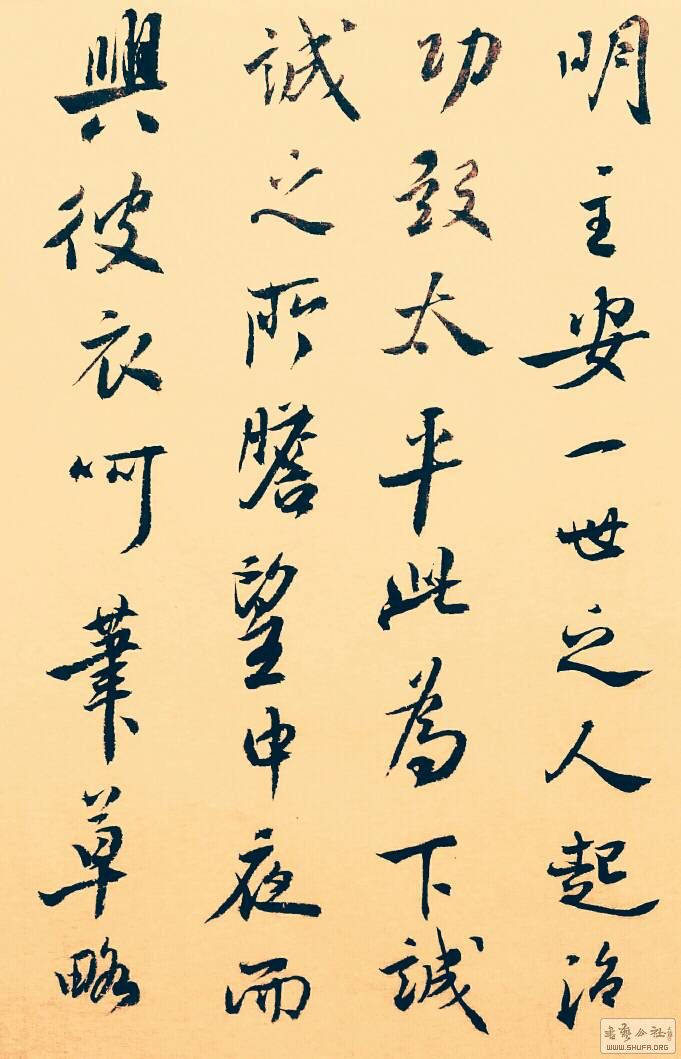 明主安一世之人起治
功致太平此為下誠
誠之所瞻望中夜而
興彼衣呵筆草略
書藝公社
WWW.SHUFA.ORG